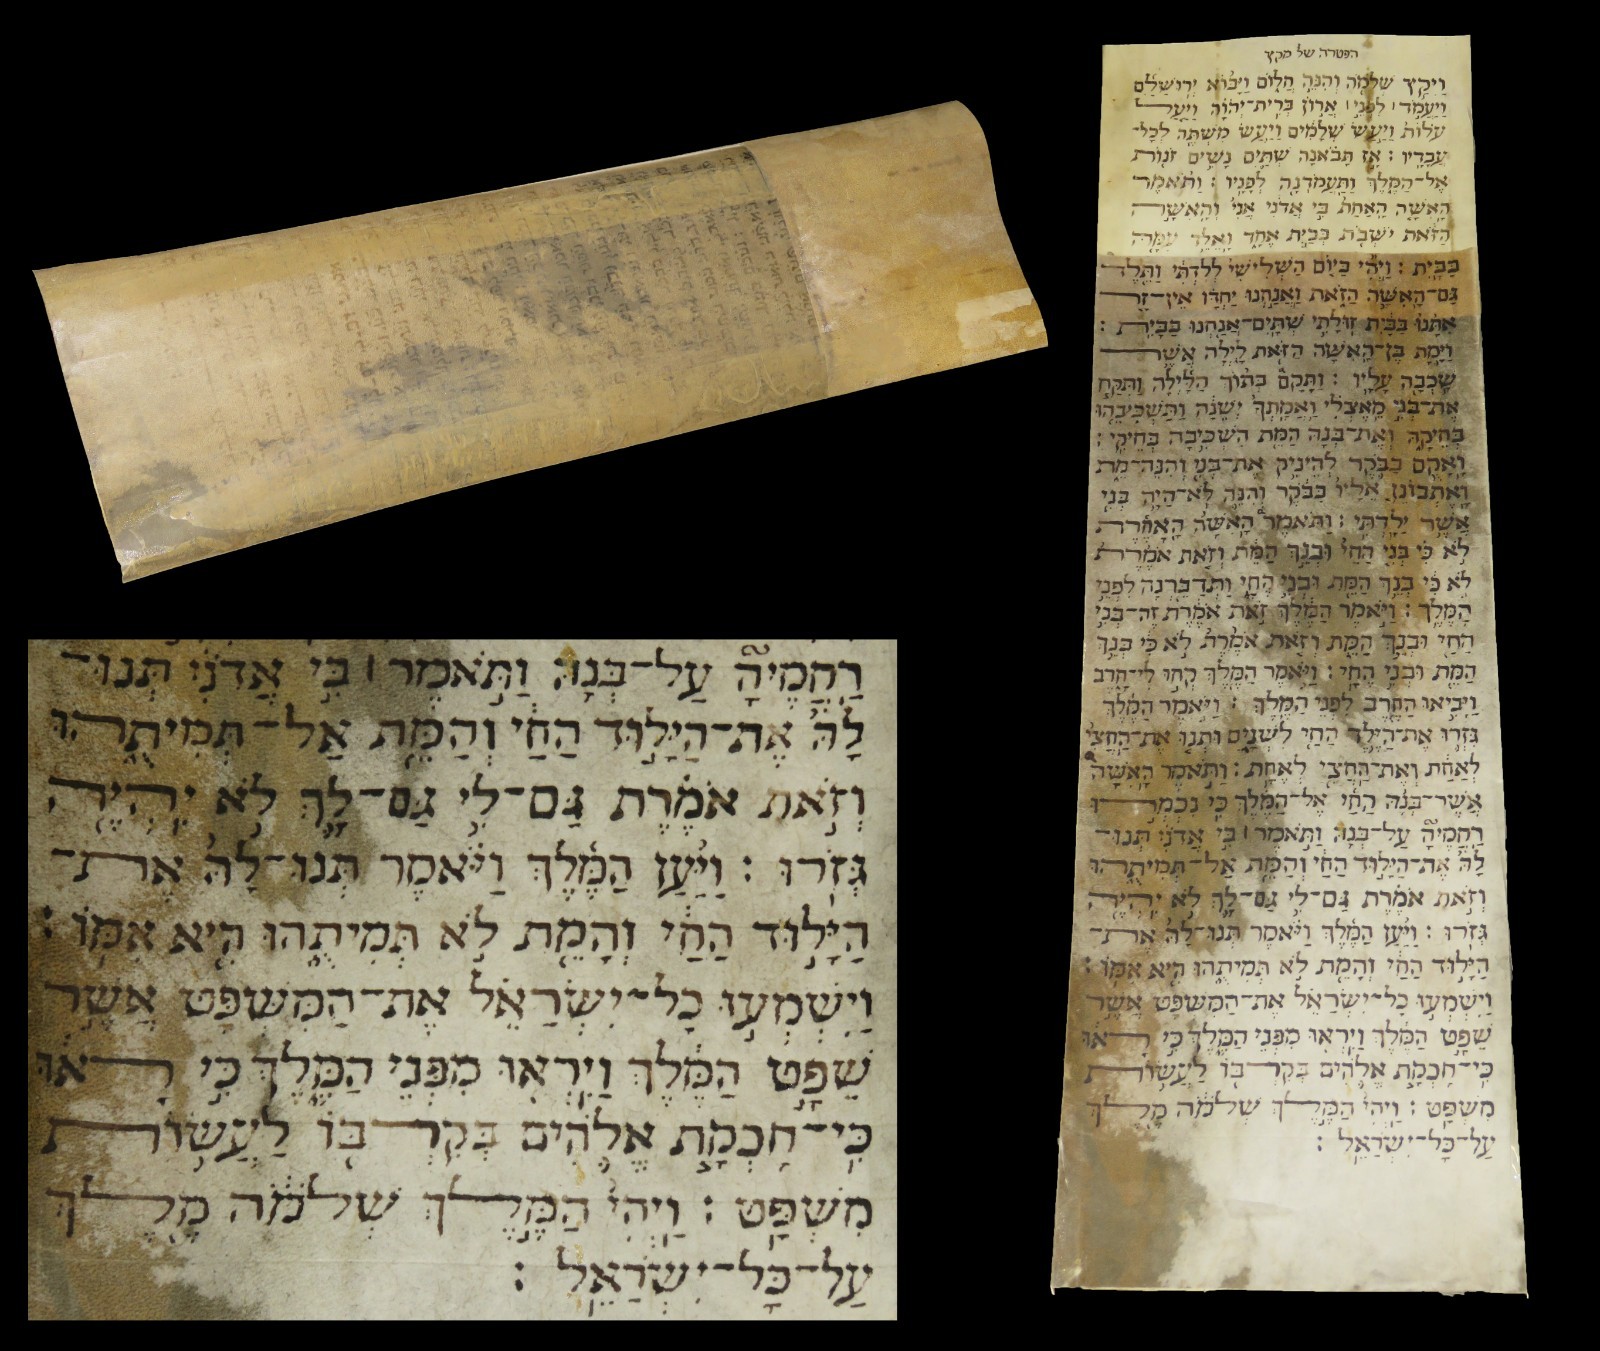 הפטרה של מקץ
וַיִּקַץ שְׁלֹמֹה וְהִנֵּה חֲלוֹם וַיָּבוֹא יְרוּשָׁלִַם
וַיַּעֲמֹד ׀ לִפְנֵי ׀ אֲרוֹן בְּרִית־יְהוָה וַיַּעַל
עֹלוֹת וַיַּעַשׂ שְׁלָמִים וַיַּעַשׂ מִשְׁתֶּה לְכָל־
עֲבָדָיו : אָז תָּבֹאנָה שְׁתַּיִם נָשִׁים זֹנוֹת
אֶל־הַמֶּלֶךְ וַתַּעֲמֹדְנָה לְפָנָיו : וַתֹּאמֶר
הָאִשָּׁה הָאַחַת בִּי אֲדֹנִי אֲנִי וְהָאִשָּׁה
הַזֹּאת יֹשְׁבֹת בְּבַיִת אֶחָד וָאֵלֵד עִמָּהּ
בַּבָּיִת : וַיְהִי בַּיּוֹם הַשְּׁלִישִׁי לְלִדְתִּי וַתֵּלֶד
גַּם־הָאִשָּׁה הַזֹּאת וַאֲנַחְנוּ יַחְדָּו אֵין־זָר
אִתָּנוּ בַּבַּיִת זוּלָתִי שְׁתַּיִם־אֲנַחְנוּ בַּבָּיִת :
וַיָּמָת בֶּן־הָאִשָּׁה הַזֹּאת לָיְלָה אֲשֶׁר
שָׁכְבָה עָלָיו : וַתָּקָם בְּתוֹךְ הַלַּיְלָה וַתִּקַּח
אֶת־בְּנִי מֵאֶצְלִי וַאֲמָתְךָ יְשֵׁנָה וַתַּשְׁכִּיבֵהוּ
בְּחֵיקָהּ וְאֶת־בְּנָהּ הַמֵּת הִשְׁכִּיבָה בְחֵיקִי :
וָאָקֻם בַּבֹּקֶר לְהֵינִיק אֶת־בְּנִי וְהִנֵּה־מֵת
וָאֶתְבּוֹנֵן אֵלָיו בַּבֹּקֶר וְהִנֵּה לֹא־הָיָה בְנִי
אֲשֶׁר יָלָדְתִּי : וַתֹּאמֶר הָאִשָּׁה הָאַחֶרֶת
לֹא כִי בְּנִי הַחַי וּבְנֵךְ הַמֵּת וְזֹאת אֹמֶרֶת
לֹא כִי בְּנֵךְ הַמֵּת וּבְנִי הֶחָי וַתְּדַבֵּרְנָה לִפְנֵי
הַמֶּלֶךְ : וַיֹּאמֶר הַמֶּלֶךְ זֹאת אֹמֶרֶת זֶה־בְּנִי
הַחַי וּבְנֵךְ הַמֵּת וְזֹאת אֹמֶרֶת לֹא כִי בְּנֵךְ
הַמֵּת וּבְנִי הֶחָי : וַיֹּאמֶר הַמֶּלֶךְ קְחוּ לִי־חָרֶב
וַיָּבִיאוּ הַחֶרֶב לִפְנֵי הַמֶּלֶךְ : וַיֹּאמֶר הַמֶּלֶךְ
גִּזְרוּ אֶת־הַיֶּלֶד הַחַי לִשְׁנָיִם וּתְנוּ אֶת־הַחֲצִי
לְאַחַת וְאֶת־הַחֲצִי לְאֶחָת : וַתֹּאמֶר הָאִשָּׁה
אֲשֶׁר־בְּנָהּ הַחַי אֶל־הַמֶּלֶךְ כִּי נִכְמְרוּ
רַחֲמֶיהָ עַל־בְּנָהּ וַתֹּאמֶר ׀ בִּי אֲדֹנִי תְּנוּ־
לָהּ אֶת־הַיָּלוּד הַחַי וְהָמֵת אַל־תְּמִיתֻהוּ
וְזֹאת אֹמֶרֶת גַּם־לִי גַּם־לָךְ לֹא יִהְיֶה
גְּזֹרוּ : וַיַּעַן הַמֶּלֶךְ וַיֹּאמֶר תְּנוּ־לָהּ אֶת־
הַיָּלוּד הַחַי וְהָמֵת לֹא תְמִיתֻהוּ הִיא אִמּוֹ :
וַיִּשְׁמְעוּ כָל־יִשְׂרָאֵל אֶת־הַמִּשְׁפָּט אֲשֶׁר
שָׁפַט הַמֶּלֶךְ וַיִּרְאוּ מִפְּנֵי הַמֶּלֶךְ כִּי רָאוּ
כִּי־חָכְמַת אֱלֹהִים בְּקִרְבּוֹ לַעֲשׂוֹת
מִשְׁפָּט : וַיְהִי הַמֶּלֶךְ שְׁלֹמֹה מֶלֶךְ
עַל־כָּל־יִשְׂרָאֵל :
רַחֲמֶיהָ עַל־בְּנָהּ וַתֹּאמֶר ׀ בִּי אֲדֹנִי תְּנוּ־
לָהּ אֶת־הַיָּלוּד הַחַי וְהָמֵת אַל־תְּמִיתֻהוּ
וְזֹאת אֹמֶרֶת גַּם־לִי גַּם־לָךְ לֹא יִהְיֶה
גְּזֹרוּ : וַיַּעַן הַמֶּלֶךְ וַיֹּאמֶר תְּנוּ־לָהּ אֶת־
הַיָּלוּד הַחַי וְהָמֵת לֹא תְמִיתֻהוּ הִיא אִמּוֹ :
וַיִּשְׁמְעוּ כָל־יִשְׂרָאֵל אֶת־הַמִּשְׁפָּט אֲשֶׁר
שָׁפַט הַמֶּלֶךְ וַיִּרְאוּ מִפְּנֵי הַמֶּלֶךְ כִּי רָאוּ
כִּי־חָכְמַת אֱלֹהִים בְּקִרְבּוֹ לַעֲשׂוֹת
מִשְׁפָּט : וַיְהִי הַמֶּלֶךְ שְׁלֹמֹה מֶלֶךְ
עַל־כָּל־יִשְׂרָאֵל :